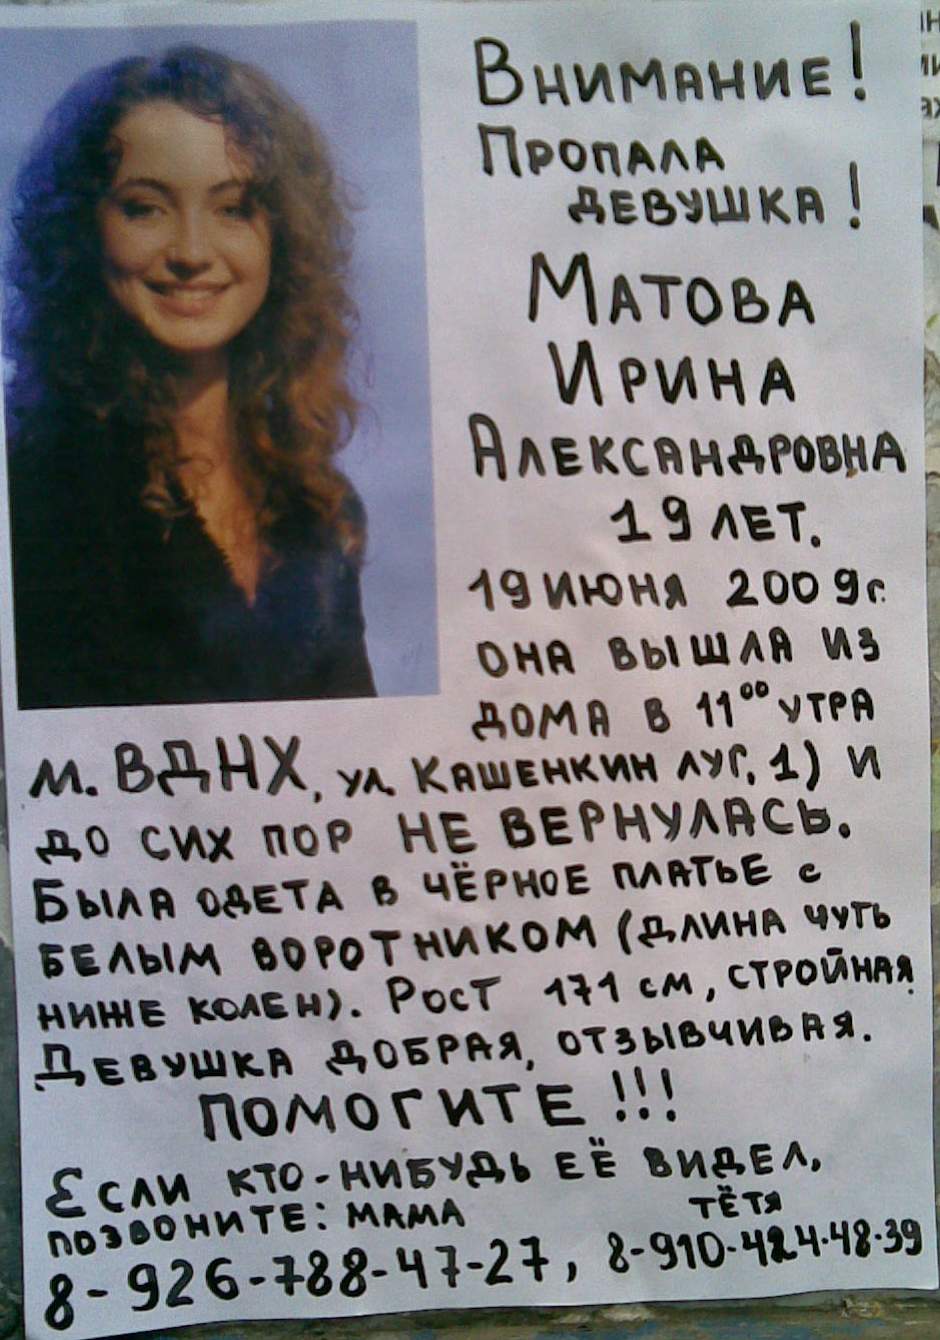 Внимание!
Пропала
девушка!
Матова
Ирина
Александровна
19 лет.
19 июня 2009г.
она вышла из
дома в 11⁰⁰ утра
м. ВДНХ, ул. Кашенкин луг, 1) и
до сих пор НЕ ВЕРНУЛАСЬ.
Была одета в чёрное платье с
белым воротником (длина чуть
ниже колен). Рост 171 см, стройная.
Девушка добрая, отзывчивая.
ПОМОГИТЕ!!!
Если кто-нибудь её видел,
позвоните: мама тётя
8-926-788-47-27, 8-910-424-48-39